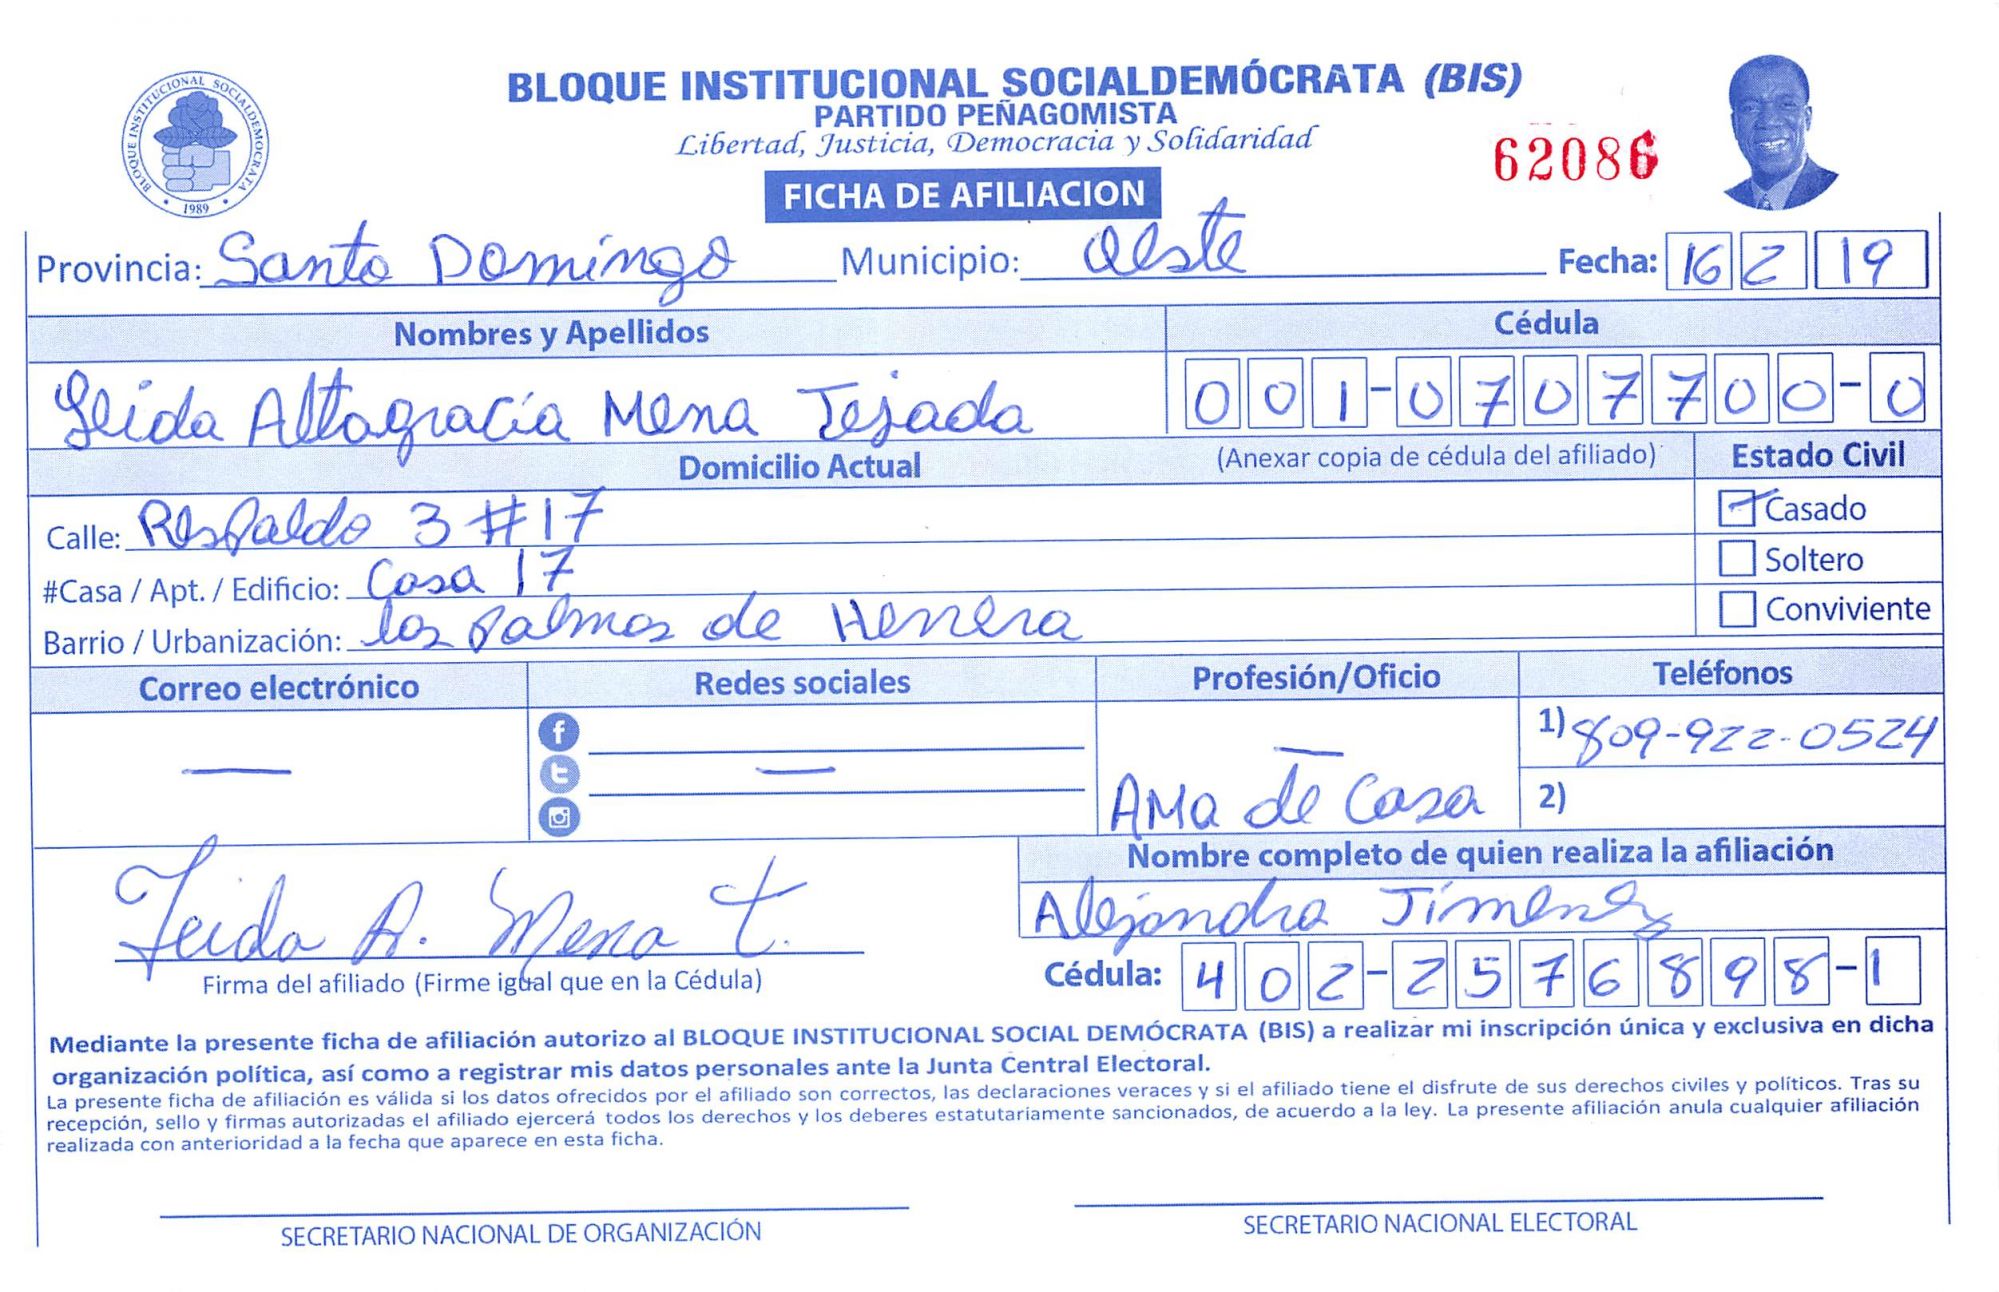 BLOQUE INSTITUCIONAL SOCIALDEMÓCRATA (BIS)
PARTIDO PEÑAGOMISTA
Libertad, Justicia, Democracia y Solidaridad
BLOQUE INSTITUCIONAL SOCIALDEMOCRATA
1989
62086
FICHA DE AFILIACION
Provincia: Santo Domingo Municipio: Oeste Fecha: 16 2 19
Nombres y Apellidos Cédula
Leida Altagracia Mena Tejada 001-0707700-0
Domicilio Actual (Anexar copia de cédula del afiliado) Estado Civil
Calle: Respaldo 3 #17 Casado
#Casa / Apt. / Edificio: Casa 17 Soltero
Barrio / Urbanización: las palmas de Herrera Conviviente
Correo electrónico Redes sociales Profesión/Oficio Teléfonos
1) 809-922-0524
— — —
Ama de Casa 2)
Nombre completo de quien realiza la afiliación
Leida A. Mena T. Alejandra Jiménez
Firma del afiliado (Firme igual que en la Cédula) Cédula: 402-2576898-1
Mediante la presente ficha de afiliación autorizo al BLOQUE INSTITUCIONAL SOCIAL DEMÓCRATA (BIS) a realizar mi inscripción única y exclusiva en dicha
organización política, así como a registrar mis datos personales ante la Junta Central Electoral.
La presente ficha de afiliación es válida si los datos ofrecidos por el afiliado son correctos, las declaraciones veraces y si el afiliado tiene el disfrute de sus derechos civiles y políticos. Tras su
recepción, sello y firmas autorizadas el afiliado ejercerá todos los derechos y los deberes estatutariamente sancionados, de acuerdo a la ley. La presente afiliación anula cualquier afiliación
realizada con anterioridad a la fecha que aparece en esta ficha.
SECRETARIO NACIONAL DE ORGANIZACIÓN SECRETARIO NACIONAL ELECTORAL